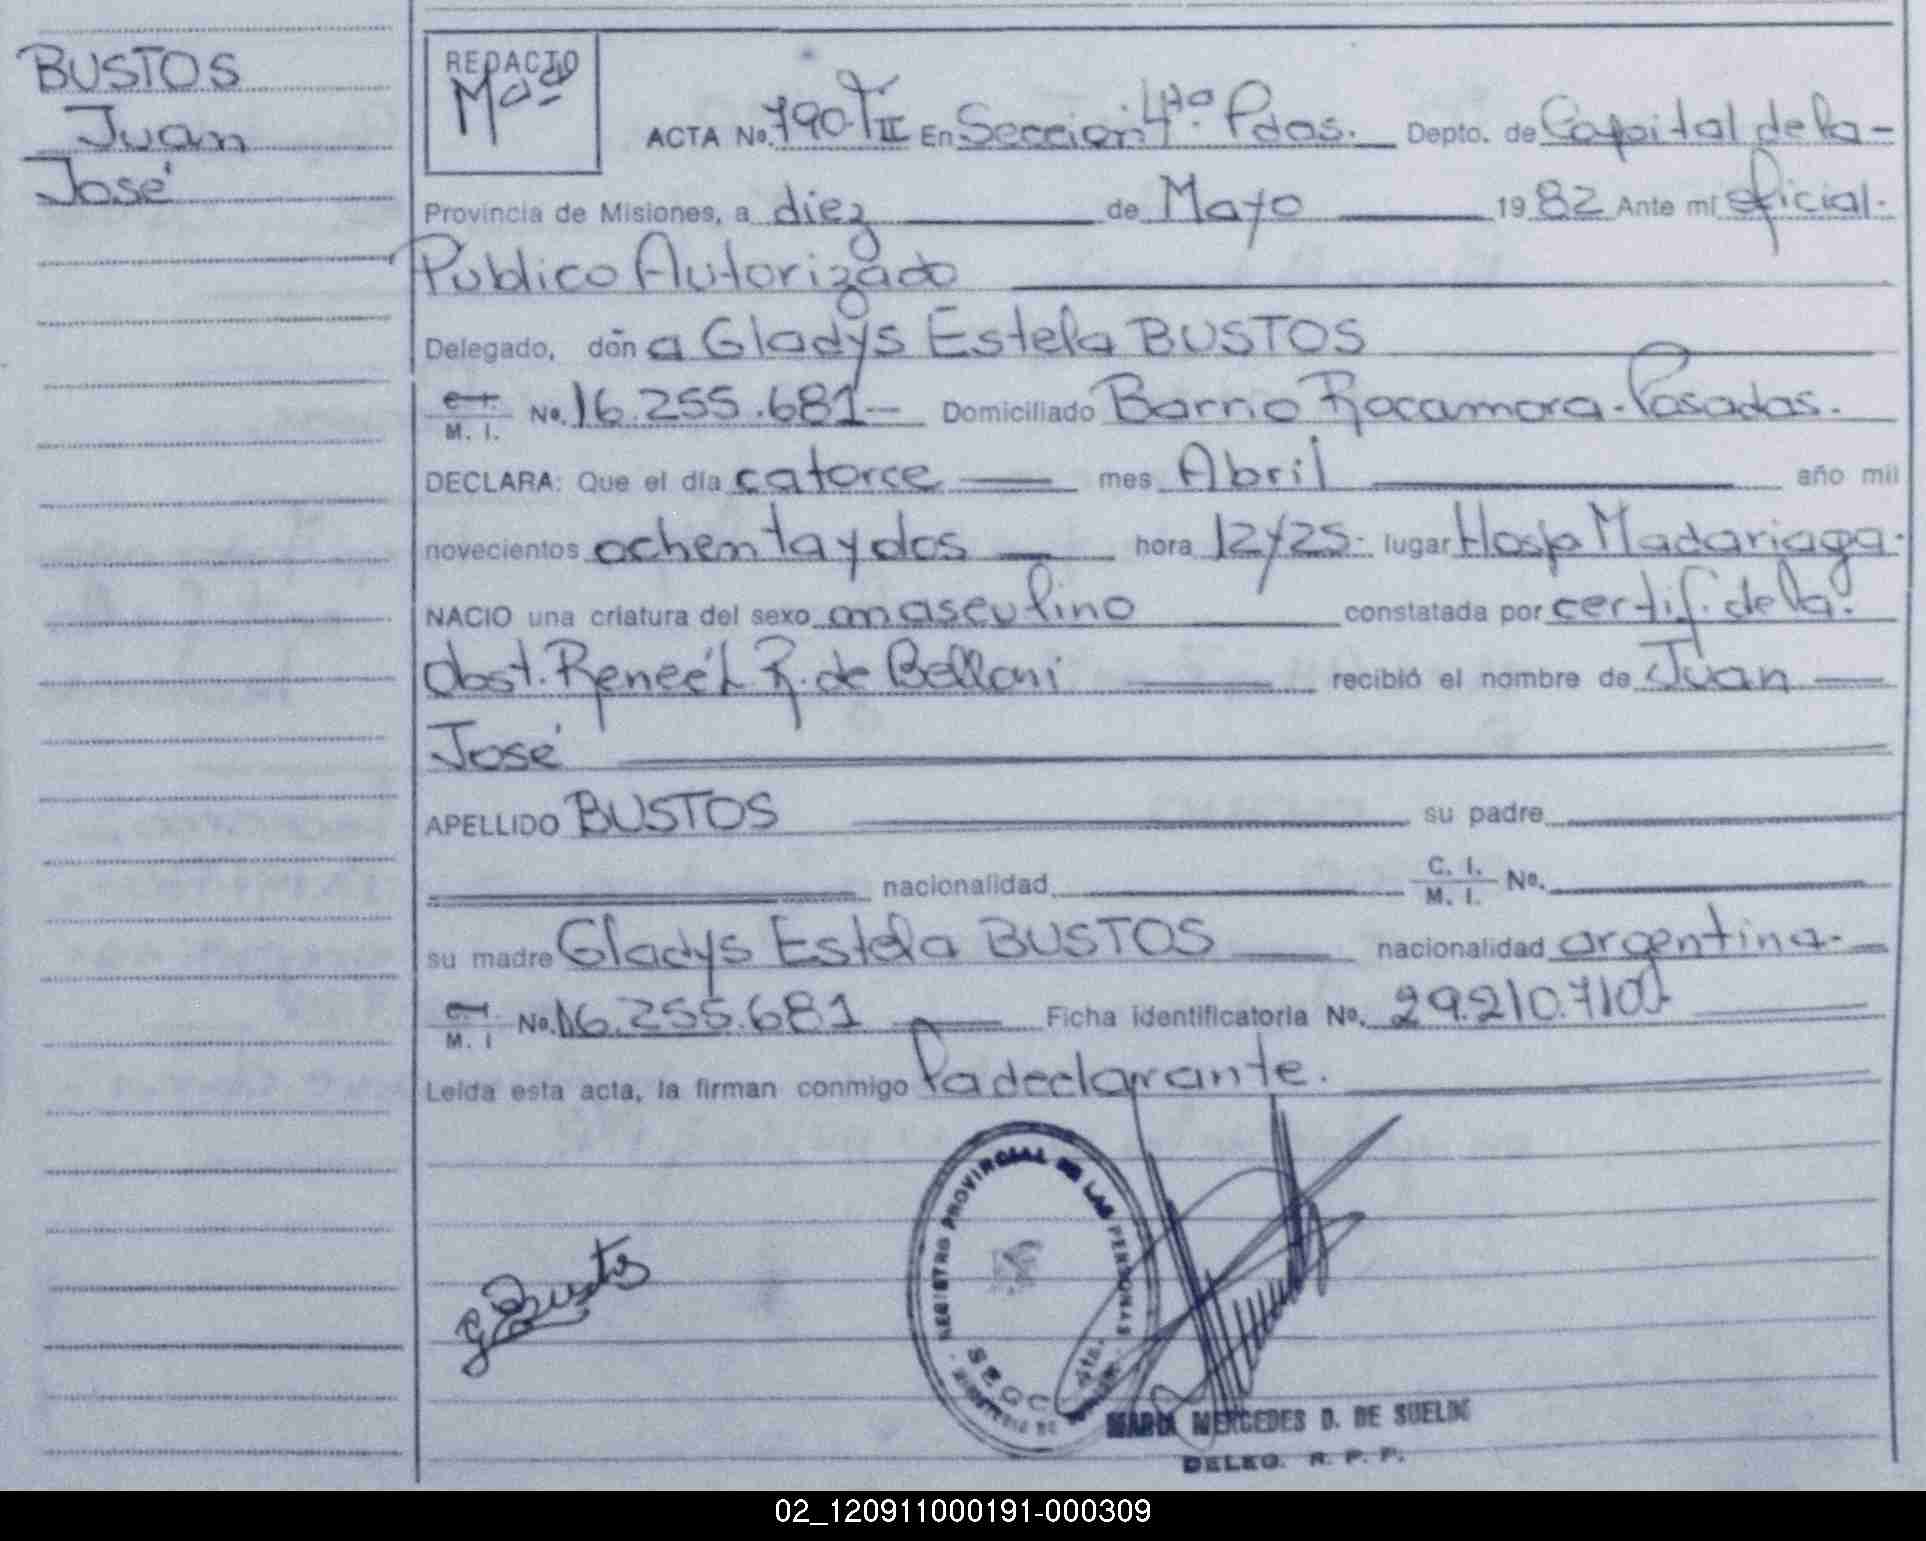 BUSTOS
Juan
José
REDACTO
Maª
ACTA Nº. 790-TII En Sección 4ta. Pdas. Depto. de Capital de la-
Provincia de Misiones, a diez de Mayo 1982 Ante mí oficial.
Publico Autorizado
Delegado, doña Gladys Estela BUSTOS
C.I.
M. I. Nº. 16.255.681-- Domiciliado Barrio Rocamora-Posadas.
DECLARA: Que el día catorce mes Abril año mil
novecientos ochenta y dos hora 12y25- lugar Hosp Madariaga.
NACIO una criatura del sexo masculino constatada por certif. de la.
Obst. Reneé L R. de Belloni recibió el nombre de Juan
José
APELLIDO BUSTOS su padre
nacionalidad C. I.
M. I. Nº.
su madre Gladys Estela BUSTOS nacionalidad argentina.-
C.I.
M. I Nº. 16.255.681 Ficha identificatoria Nº. 29.210.710
Leída esta acta, la firman conmigo la declarante.
G Bustos
REGISTRO PROVINCIAL DE LAS PERSONAS
MARIA MERCEDES D. DE SUELDO
DELEG. R. P. P.
02_120911000191-000309